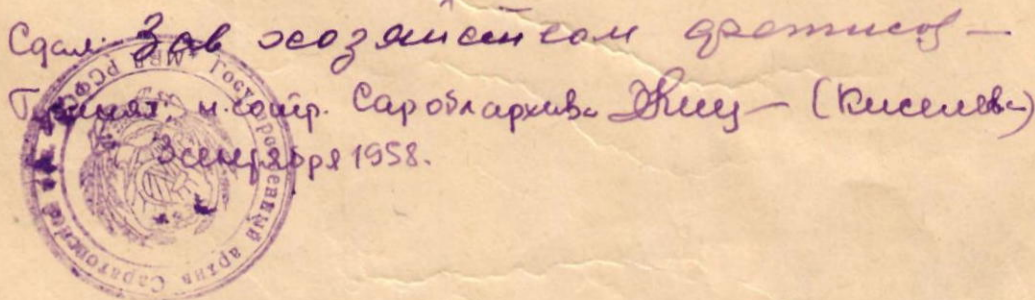 Сдал: Зав хозяйством
Принял: н. сотр. Сароблархива (Киселева)
3 сентября 1958.
МВД РСФСР Государственный архив Саратовской